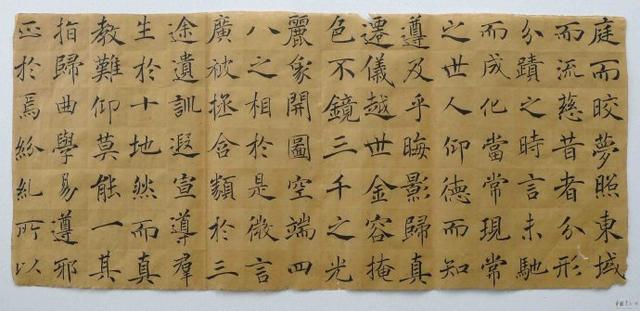 庭而晈夢照東域
而流慈昔者分形
分蹟之時言未馳
而成化當常現常
之世人仰德而知
遵及乎晦影歸真
遷儀越世金容掩
色不鏡三千之光
麗象開圖空端四
八之相於是微言
廣被拯含類於三
途遺訓遐宣導羣
生於十地然而真
教難仰莫能一其
指歸曲學易遵邪
正於焉紛糺所以